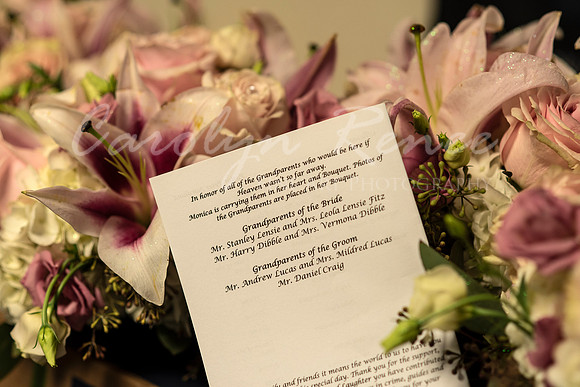 Carolyn Pence
PHOTOGRAPHY
In honor of all of the Grandparents who would be here if
Heaven wasn't so far away.
Monica is carrying them in her heart and Bouquet. Photos of
the Grandparents are placed in her Bouquet.
Grandparents of the Bride
Mr. Stanley Lensie and Mrs. Leola Lensie Fitz
Mr. Harry Dibble and Mrs. Vermona Dibble
Grandparents of the Groom
Mr. Andrew Lucas and Mrs. Mildred Lucas
Mr. Daniel Craig
and friends it means the world to us to have
special day. Thank you for the support,
laughter you have contributed
in crime, guides and